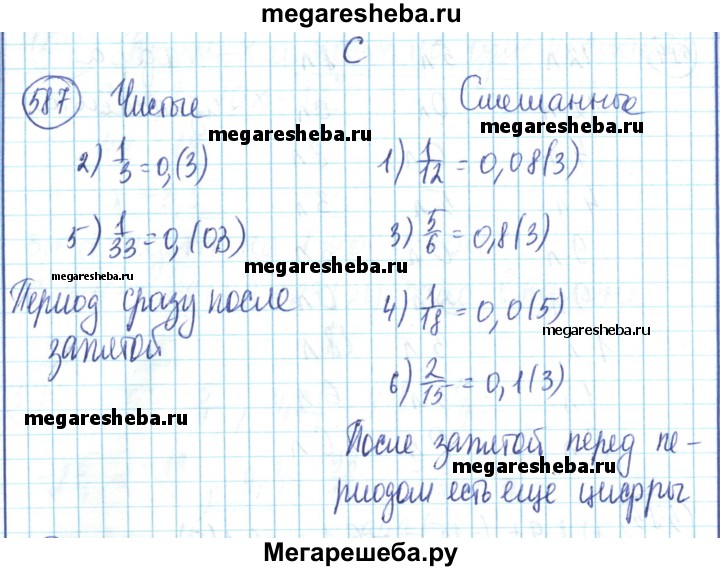 megaresheba.ru
С
587 Чистые Смешанные
megaresheba.ru megaresheba.ru
2) 1/3 = 0,(3) 1) 1/12 = 0,08(3)
5) 1/33 = 0,(03) 3) 5/6 = 0,8(3)
megaresheba.ru megaresheba.ru
Период сразу после 4) 1/18 = 0,0(5)
megaresheba.ru
запятой
6) 2/15 = 0,1(3)
megaresheba.ru
После запятой перед пе-
megaresheba.ru
риодом есть еще цифры
megaresheba.ru
Мегарешеба.ру